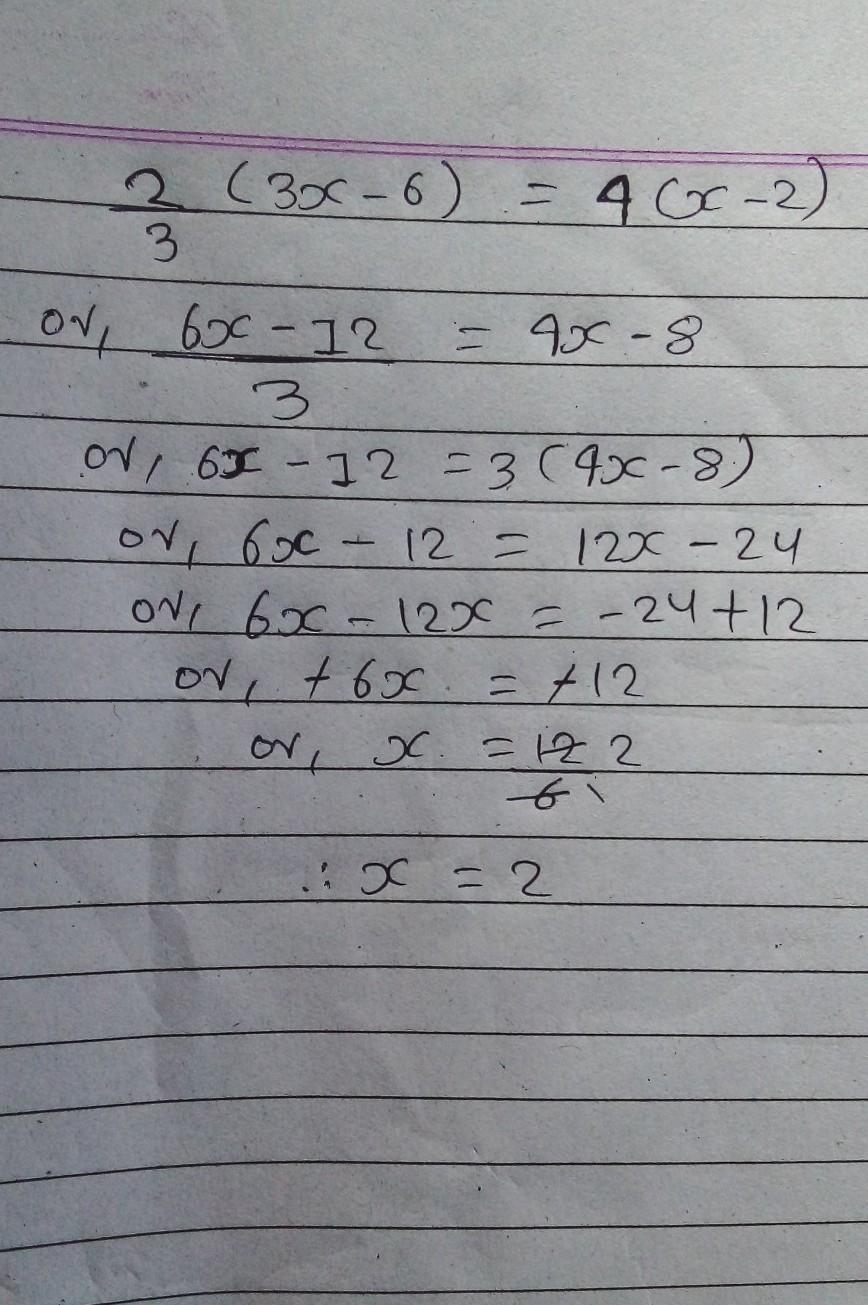 2/3 (3x - 6) = 4(x - 2)
or, (6x - 12)/3 = 4x - 8
or, 6x - 12 = 3(4x - 8)
or, 6x - 12 = 12x - 24
or, 6x - 12x = -24 + 12
or, +6x = +12
or, x = 12/6 2
∴ x = 2